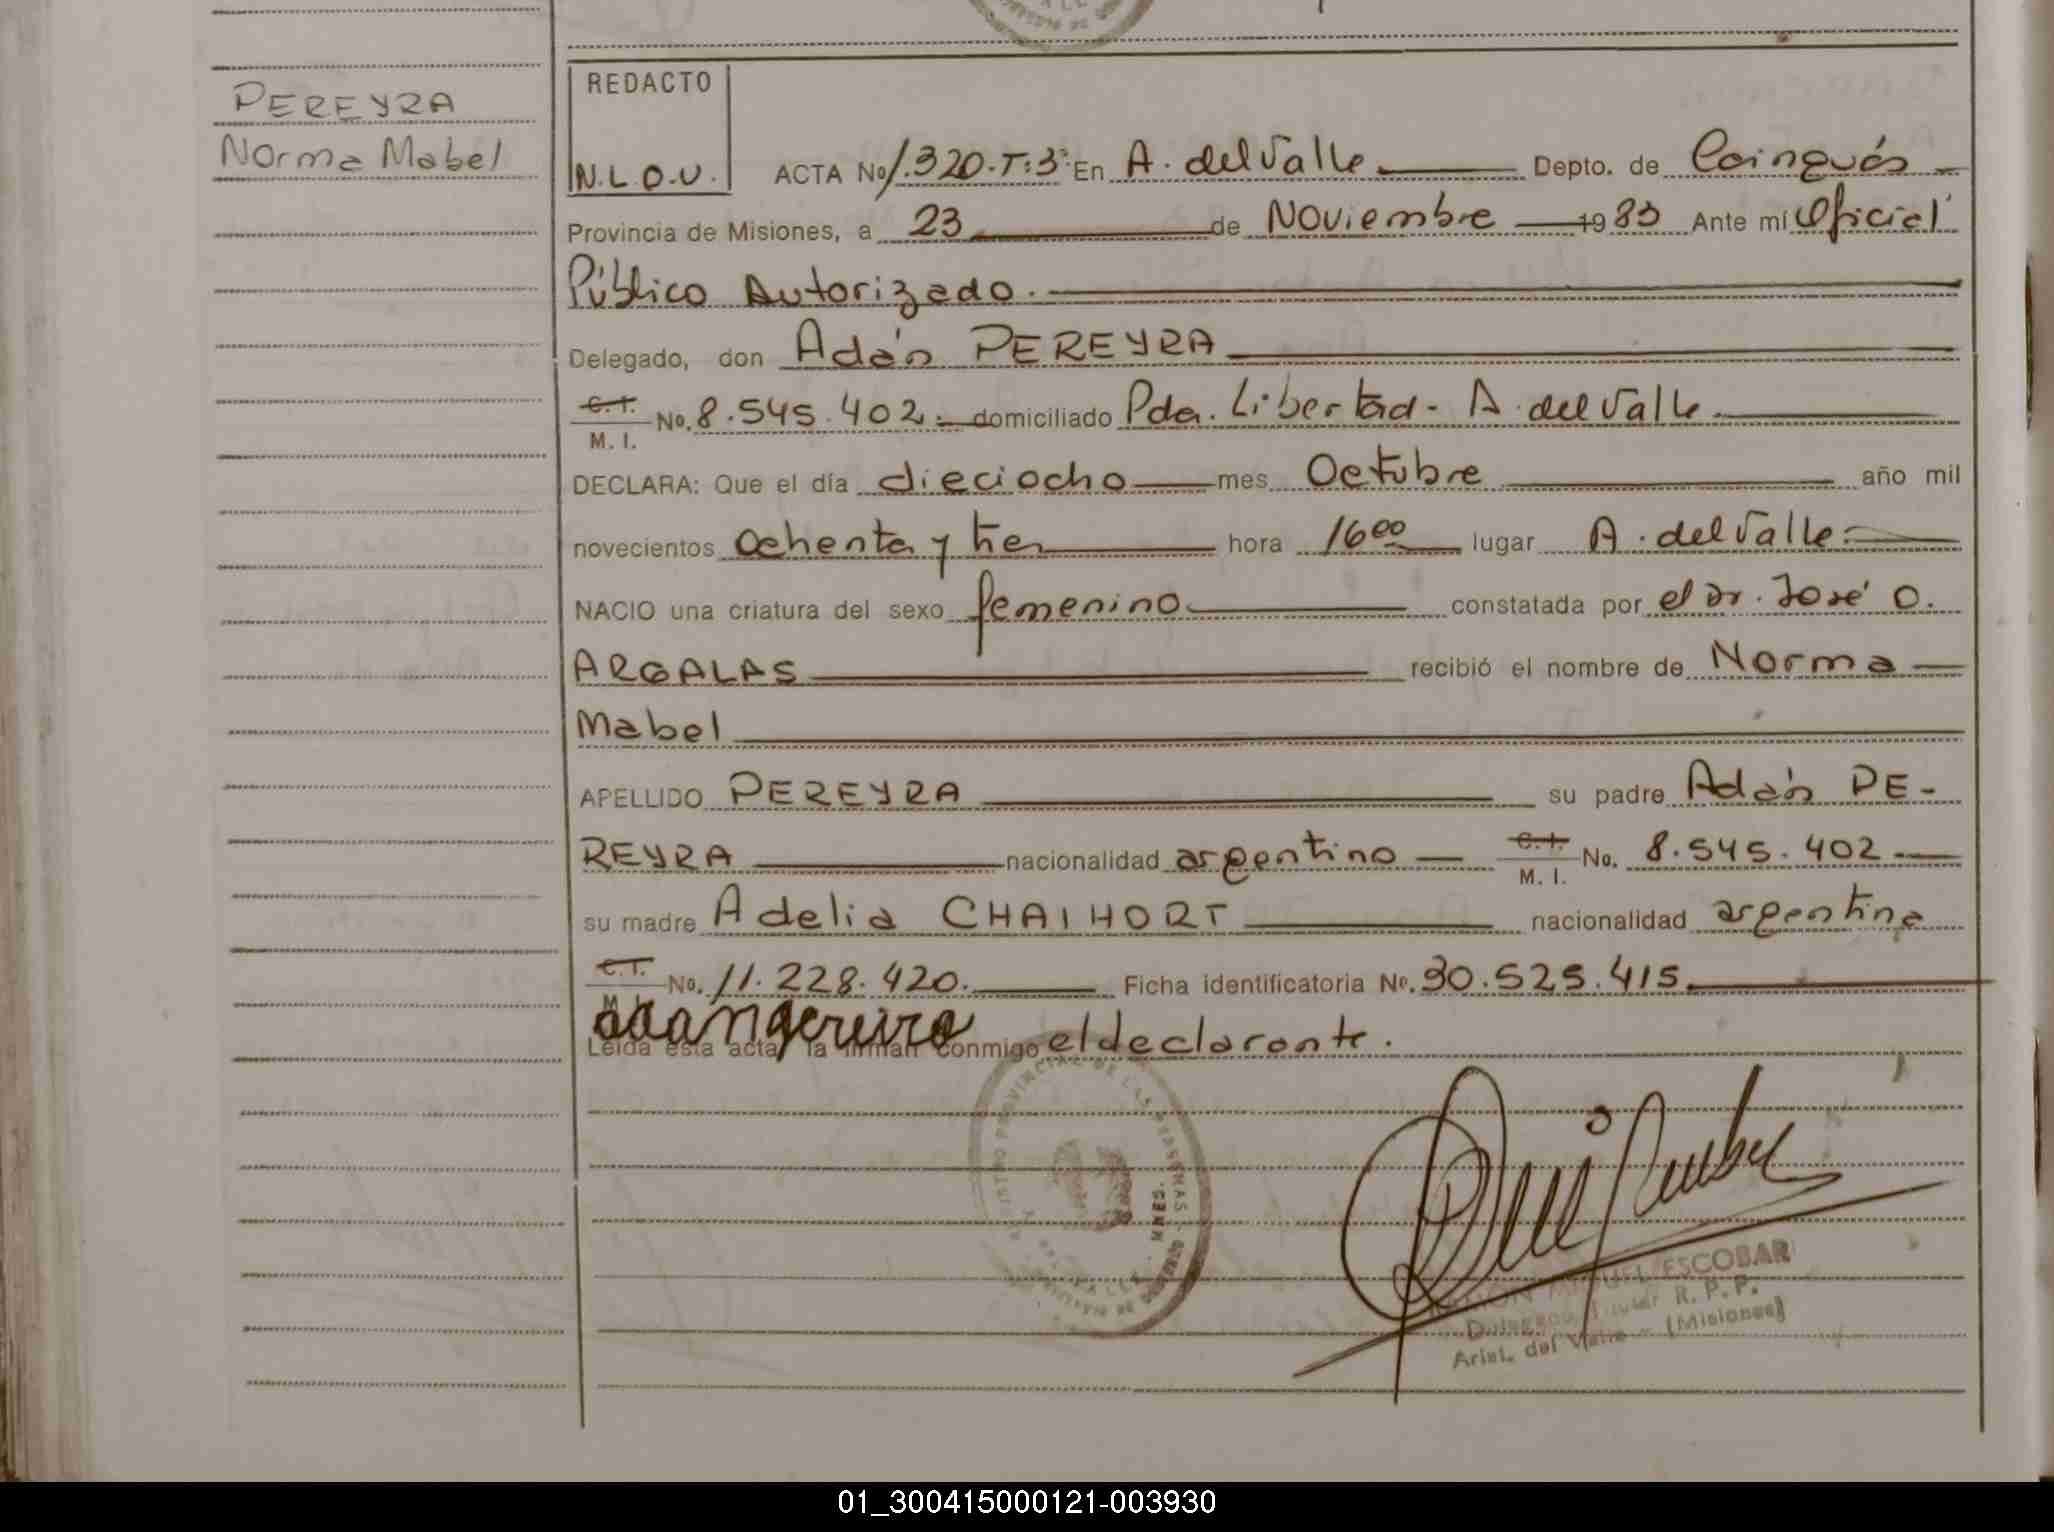 PEREYRA
Norma Mabel
REDACTO
N.L.O.V.
ACTA No 1.320.T:3° En A. del Valle Depto. de Cainguás
Provincia de Misiones, a 23 de Noviembre 1983 Ante mí Oficial
Público Autorizado.
Delegado, don Adán PEREYRA
C.I. M. I. No. 8.545.402. domiciliado Pda. Libertad - A. del Valle
DECLARA: Que el día dieciocho mes Octubre año mil
novecientos ochenta y tres hora 16 00 lugar A. del Valle
NACIO una criatura del sexo femenino constatada por el Dr. José O.
ARGALAS recibió el nombre de Norma
Mabel
APELLIDO PEREYRA su padre Adán PE-
REYRA nacionalidad argentino C.I. M. I. No. 8.545.402
su madre Adelia CHAIHORT nacionalidad argentina
C.I. M. I. No. 11.228.420. Ficha identificatoria No. 30.525.415
Leída esta acta, la firman conmigo el declarante.
REGISTRO PROVINCIAL DE LAS PERSONAS
MNES.
RAMON MIGUEL ESCOBAR
Delegado Titular R. P. P.
Arist. del Valle - (Misiones)
01_300415000121-003930